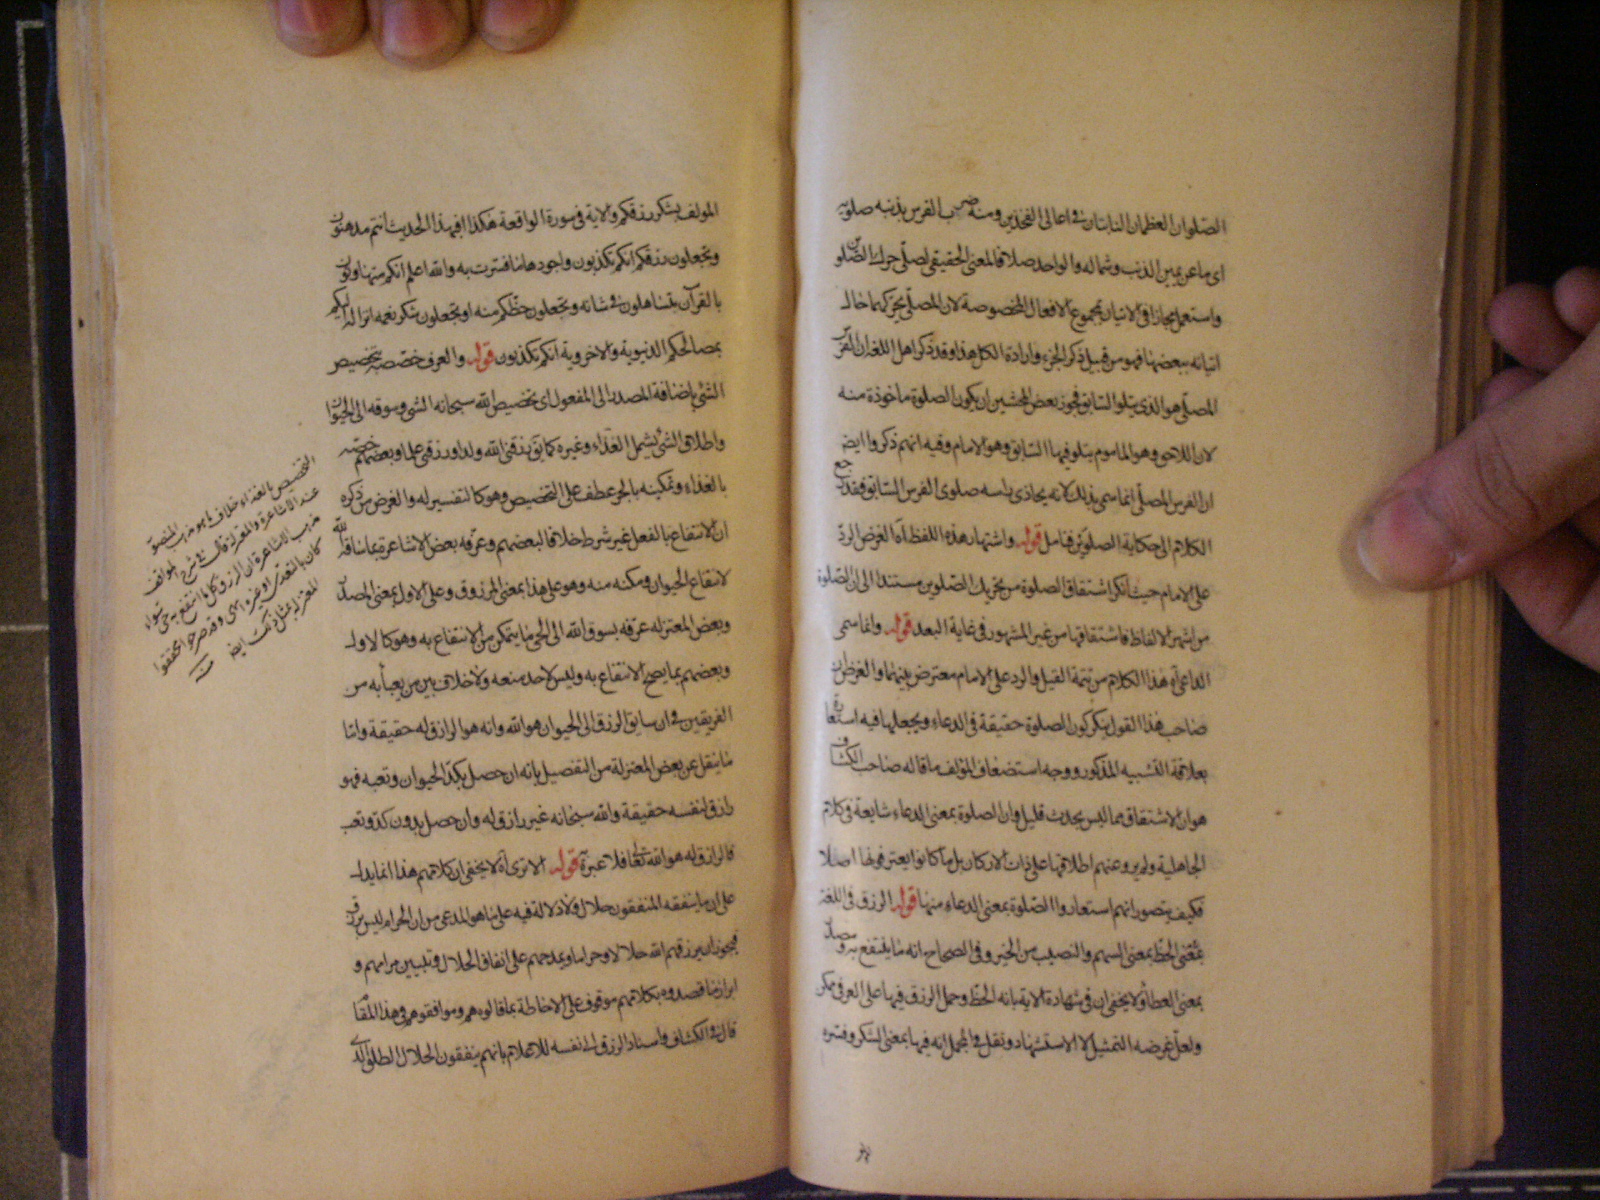 الصلوان العظمان الناتيان في اعالي الفخذين ومنه ضرب الفرس بذنبه صلويه
اي ما عن يمين الذنب وشماله والواحد صلا فالمعنى الحقيقي لصلّى حرك الصّلوين
واستعمل مجازا في الاتيان بمجموع الافعال المخصوصة لان المصلّي يحركهما حال
اتيانه ببعضها فهو من قبيل ذكر الجزء وارادة الكل هذا وقد ذكر اهل اللغة ان الفرس
المصلّي هو الذي يتلو السّابق فجوز بعض المحشين ان يكون الصلوة ماخوذة منه
لان اللاحق وهو الماموم يتلو فيها السّابق وهو الامام وفيه انهم ذكروا ايضا
ان الفرس المصلّي انما سمي بذلك لانه يحاذي براسه صلوي الفرس السّابق فقد رجع
الكلام الى حكاية الصلوين فتامل قوله واشتهار هذه اللفظ آه الغرض الردّ
على الامام حيث انكر اشتقاق الصلوة من تحريك الصّلوين مستندا الى ان الصّلوة
من اشهر الالفاظ فاشتقاقها من غير المشهور في غاية البعد قوله وانما سمي
الداعي آه هذا الكلام من تتمة القيل والرد على الامام معترض بينهما والغرض ان
صاحب هذا القول ينكر كون الصلوة حقيقة في الدعاء ويجعلها فيه استعارة
بعلاقة التشبيه المذكور ووجه استضعاف المؤلف ما قاله صاحب الكشاف
هو ان الاشتقاق مما ليس بحدث قليل وان الصلوة بمعنى الدعاء شايعة في كلام
الجاهلية ولم يرو عنهم اطلاقها على ذات الاركان بل ما كانوا يعترفونها اصلا
فكيف يتصور انهم استعاروا الصّلوة بمعنى الدعاء منها قوله الرزق في اللغة
بمعنى الحظّ بمعنى السهم والنصيب من الخير وفي الصحاح انه ما ينتفع به ومصدر
بمعنى العطاء ولا يخفى ان في شهادة الاية بانه الحظّ وحمل الرزق فيها على العرفي ممكن
ولعلّ غرضه التمثيل لا الاستشهاد ونقل في المجمل انه فيها بمعنى الشكر وفسّره
المولف بشكر رزقكم والاية في سورة الواقعة هكذا افبهذا الحديث انتم مدهنون
وتجعلون رزقكم انكم تكذبون واجود ما فسرت به والله اعلم انكم متهاونون
بالقرآن متساهلون في شانه وتجعلون حظّكم منه او تجعلون شكر نعمه انزاله اليكم
بمصالحكم الدنيوية والاخروية انكم تكذبون قوله والعرف خصّصه بتخصيص
الشئ باضافة المصدر الى المفعول اي تخصيص الله سبحانه الشئ وسوقه الى الحيوان
واطلاق الشئ ليشمل الغذاء وغيره كما يق رزقني الله ولدا ورزقني علما وبعضهم خصّه
بالغذاء وتمكينه بالجر عطف على التخصيص وهو كالتفسير له والغرض من ذكره
ان الانتفاع بالفعل غير شرط خلافا لبعضهم وعرّفه بعض الاشاعرة بما ساقه الله
لانتفاع الحيوان ومكنه منه وهو على هذا بمعنى المرزوق وعلى الاول بمعنى المصدر
وبعض المعتزله عرّفه بسوق الله الى الحي ما يتمكن من الانتفاع به وهو كالاول
وبعضهم بما يصح الانتفاع به وليس لاحد منعه ولا خلاف بين من يعبأ به من
الفريقين في ان سايق الرزق الى الحيوان هو الله وانه هو الرازق له حقيقة واما
ما ينقل عن بعض المعتزلة من التفصيل بانه ان حصل بكدّ الحيوان وتعبه فهو
رازق لنفسه حقيقة والله سبحانه غير رازق له وان حصل بدون كدّ وتعب
فالرازق له هو الله تعالى فلا عبرة به قوله الا ترى آه لا يخفى ان كلامهم هذا انما يدل
على ان ما ينفقه المنفقون حلال ولا دلالة فيه على ما هو المدعى من ان الحرام ليس برزق
فيجوز ان يرزقهم الله حلالا وحراما ويمدحهم على انفاق الحلال وتبيين مرامهم و
ابراز ما قصدوه بكلامهم موقوف على الاحاطة بما قالوه هم وموافقوهم في هذا المقام
قال في الكشاف واسناد الرزق الى نفسه للاعلام بانهم ينفقون الحلال الطلق الذي
التخصيص بالغذاء خلاف ما هو مذهب المنصور
عند الاشاعرة والمعتزلة قال في شرح المواقف
مذهب الاشاعرة ان الرزق كل ما انتفع به حي سواء
كان بالتغذي او غيره انتهى وقد صرح محققوا
المعتزله بمثل ذلك ايضا
منه